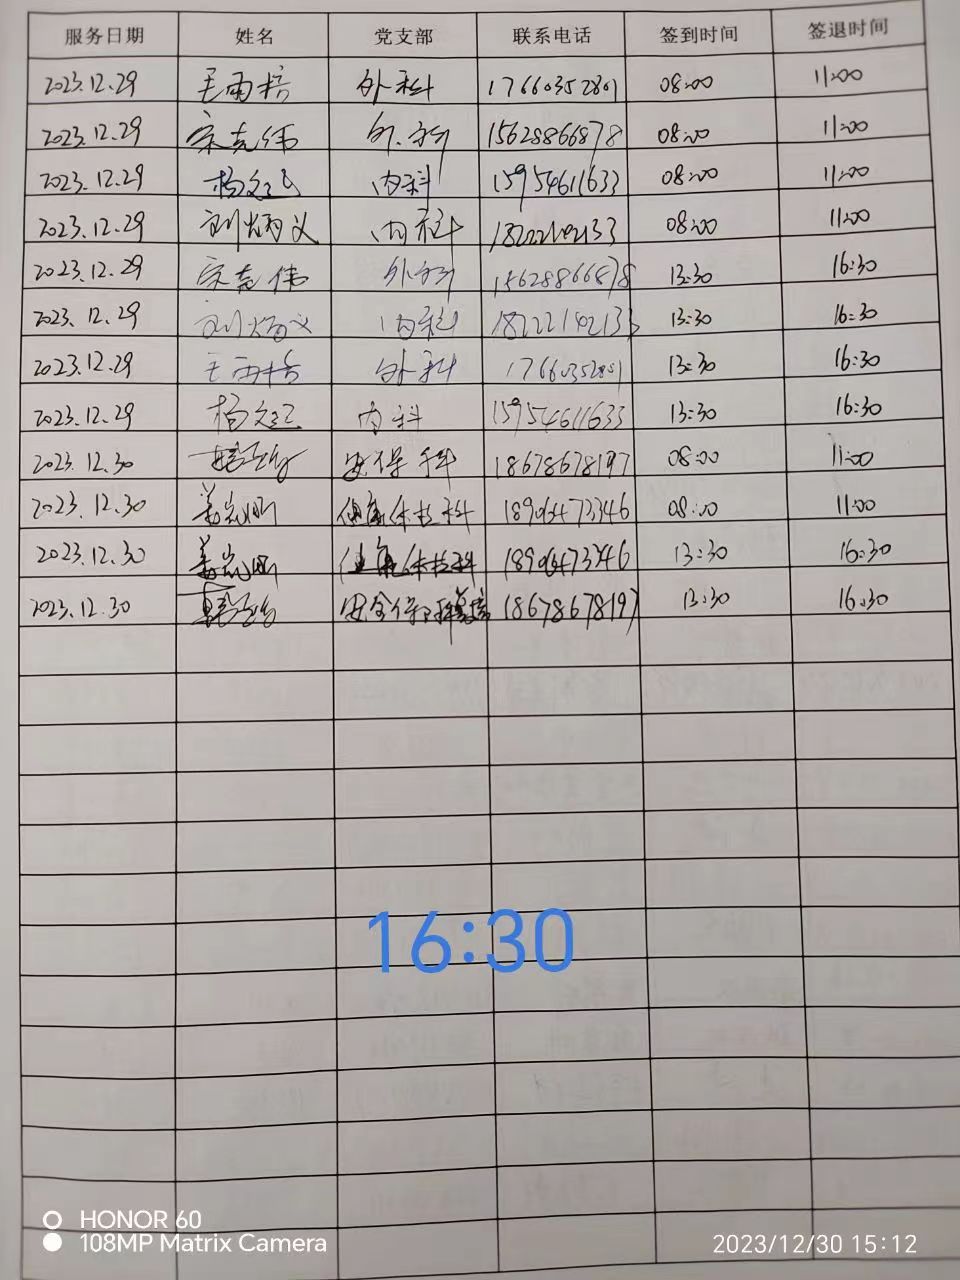 服务日期 姓名 党支部 联系电话 签到时间 签退时间
2023.12.29 王雨培 外科 17660352801 08:00 11:00
2023.12.29 宋克伟 外科 15628866878 08:00 11:00
2023.12.29 杨 内科 15954611633 08:00 11:00
2023.12.29 刘炳义 内科 18222142133 08:00 11:00
2023.12.29 宋克伟 外科 15628866878 13:30 16:30
2023.12.29 刘炳义 内科 18222142133 13:30 16:30
2023.12.29 王雨培 外科 17660352801 13:30 16:30
2023.12.29 杨 内科 15954611633 13:30 16:30
2023.12.30 安保科 18678678197 08:00 11:00
2023.12.30 姜 健康体检科 18906473346 08:00 11:00
2023.12.30 姜 健康体检科 18906473346 13:30 16:30
2023.12.30 安全保 18678678197 13:30 16:30
16:30
HONOR 60
108MP Matrix Camera
2023/12/30 15:12